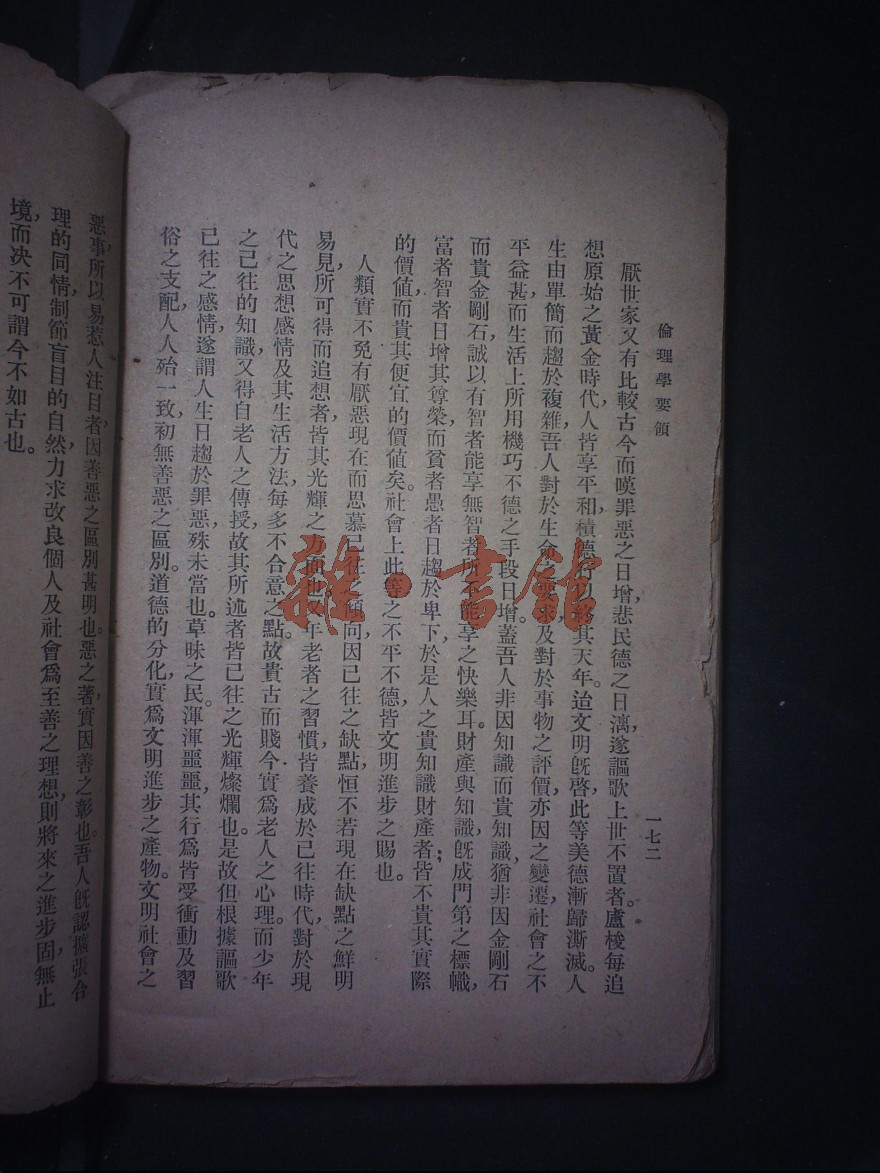 倫理學要領
一七二
厭世家又有比較古今而嘆罪惡之日增，悲民德之日漓，遂謳歌上世不置者。盧梭每追
想原始之黃金時代，人皆享平和，積德行以終其天年。迨文明旣啓，此等美德漸歸澌滅。人
生由單簡而趨於複雜，吾人對於生命之要求及對於事物之評價，亦因之變遷，社會之不
平益甚，而生活上所用機巧不德之手段日增。蓋吾人非因知識而貴知識，猶非因金剛石
而貴金剛石，誠以有智者能享無智者所不能享之快樂耳。財產與知識，旣成門第之標幟，
富者智者日增其尊榮，而貧者愚者日趨於卑下，於是人之貴知識財產者，皆不貴其實際
的價值，而貴其便宜的價值矣。社會上此等之不平不德，皆文明進步之賜也。
人類實不免有厭惡現在而思慕已往之傾向，因已往之缺點，恒不若現在缺點之鮮明
易見，所可得而追想者，皆其光輝之方面也。又年老者之習慣，皆養成於已往時代，對於現
代之思想感情及其生活方法，每多不合意之點。故貴古而賤今，實爲老人之心理。而少年
之已往的知識，又得自老人之傳授，故其所述者，皆已往之光輝燦爛也。是故但根據謳歌
已往之感情，遂謂人生日趨於罪惡，殊未當也。草昧之民，渾渾噩噩，其行爲皆受衝動及習
俗之支配，人人殆一致，初無善惡之區別。道德的分化，實爲文明進步之產物。文明社會之
惡事，所以易惹人注目者，因善惡之區別甚明也。惡之著，實因善之彰也。吾人旣認擴張合
理的同情，制節盲目的自然力，求改良個人及社會，爲至善之理想，則將來之進步，固無止
境，而决不可謂今不如古也。
雜·書館